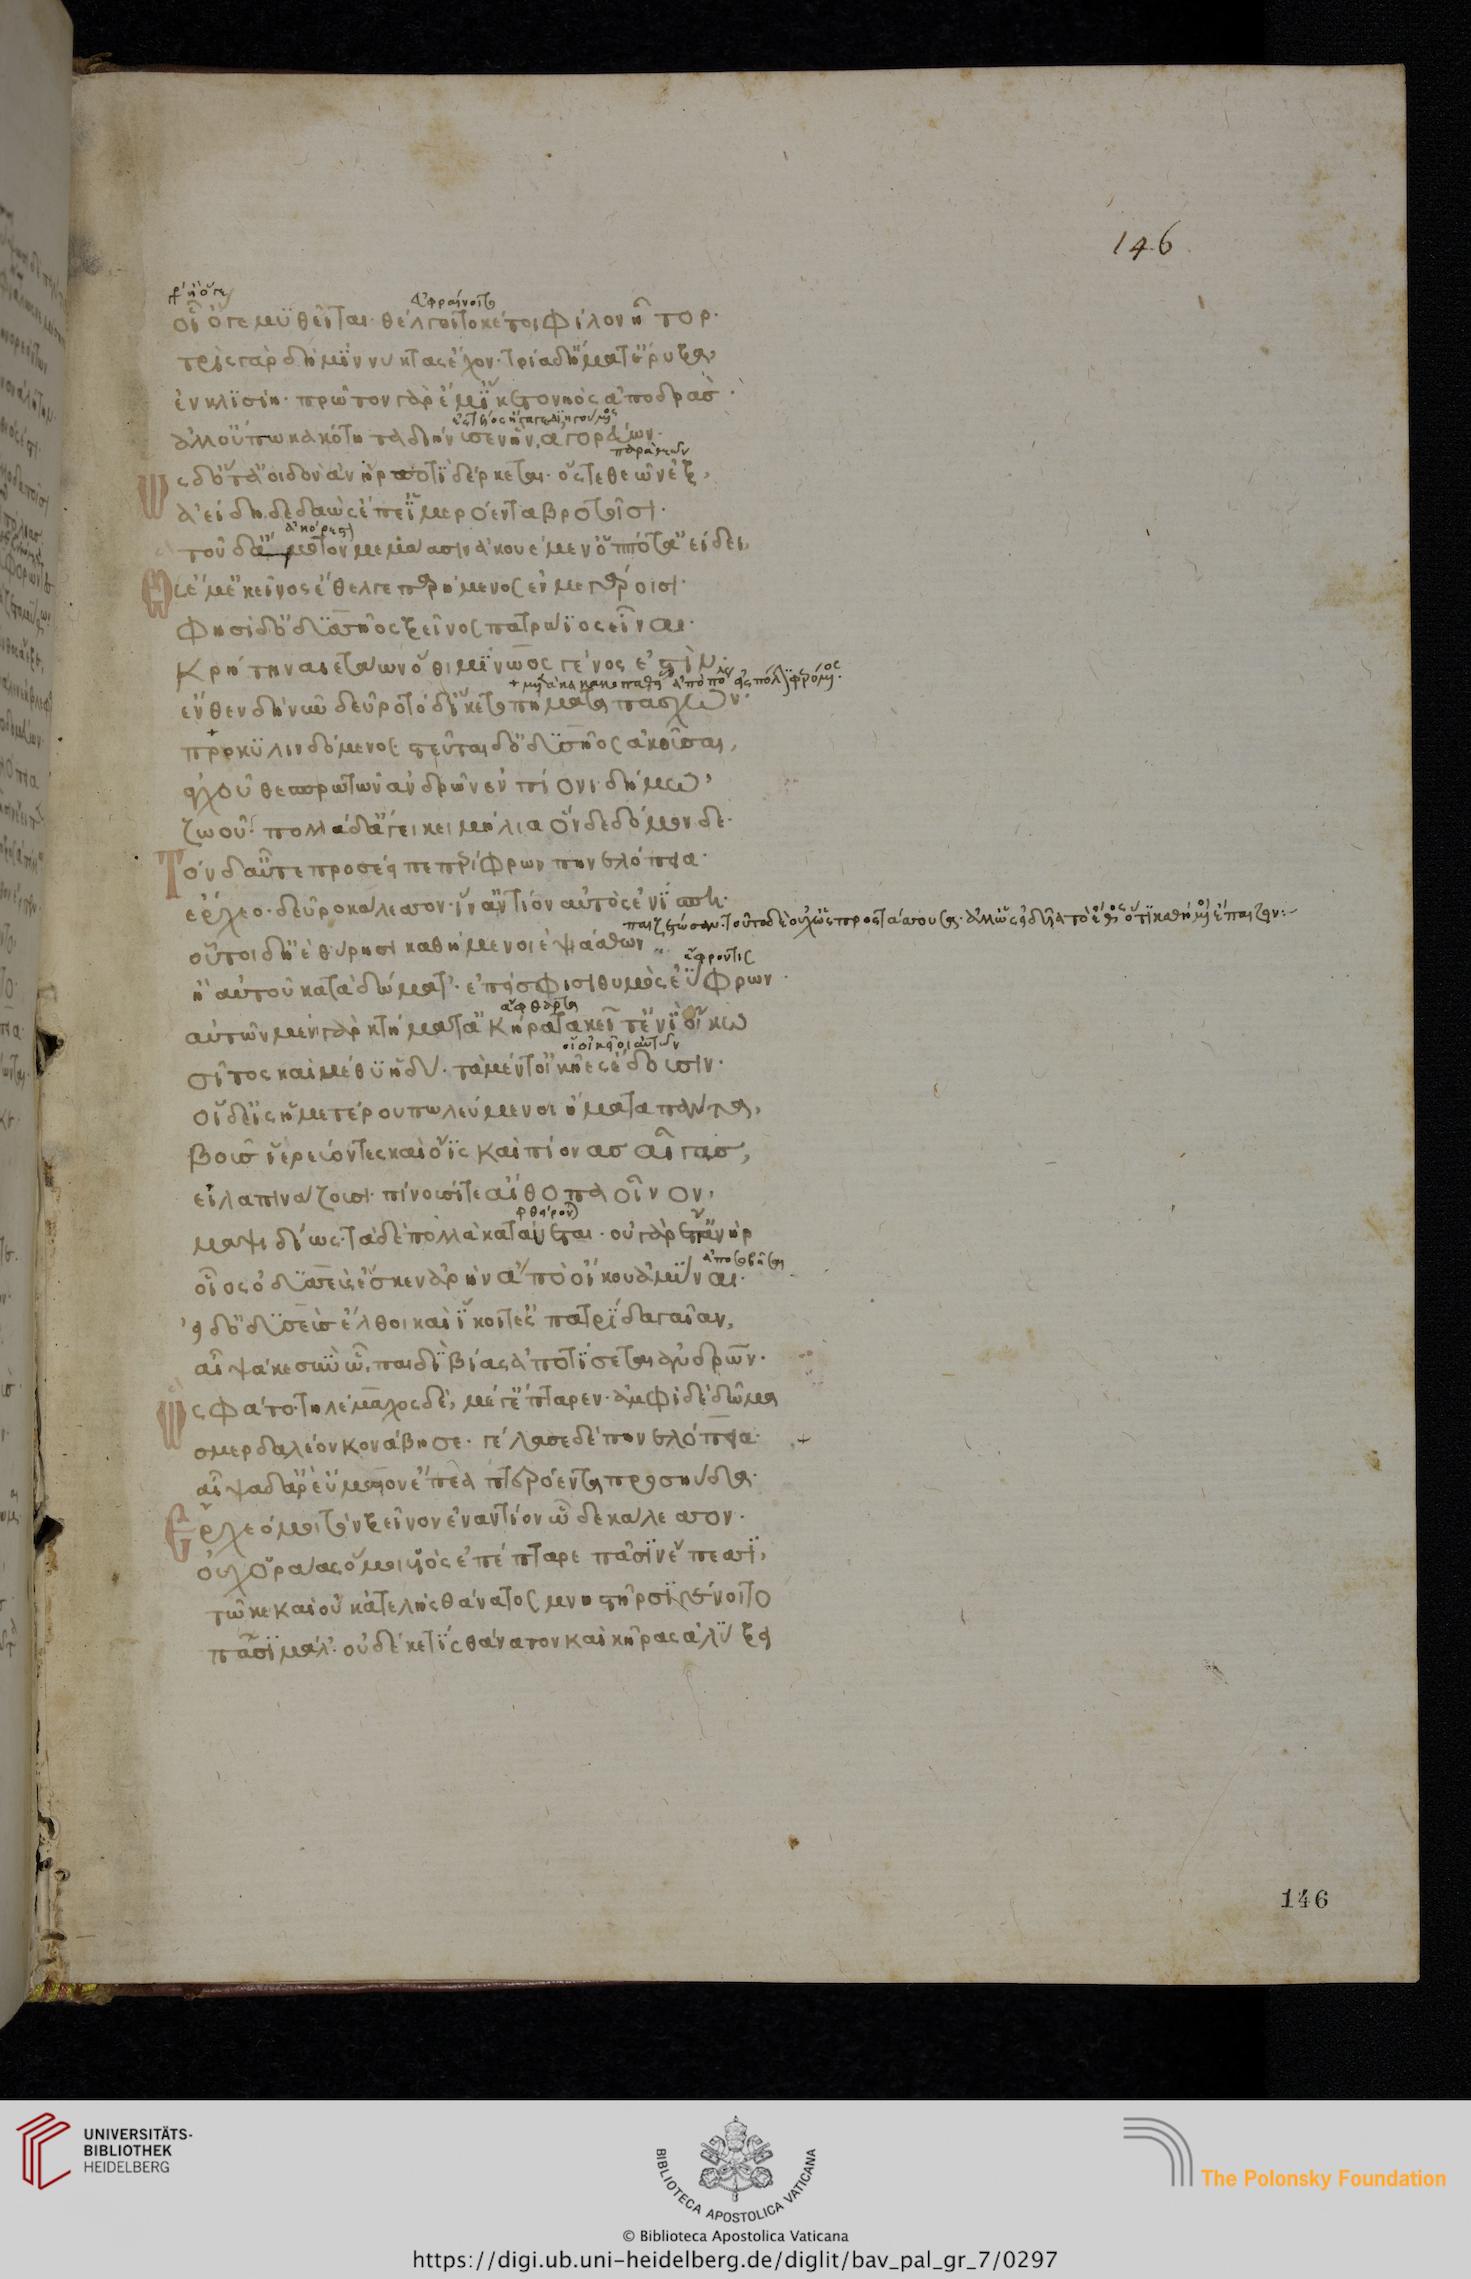 146
ἀφραίνοιτο
οἷ ὅγε μυθεῖται· θέλγοιτο κέ τοι φίλον ἦτορ·
τρὶς γὰρ δή μιν νύκτας ἔχον· τρία δ' ἤματ' ἔρυξα,
ἐν κλισίη· πρῶτον γὰρ ἔμ' ἵκετο νηὸς ἀποδράσ·
ἀλλ' οὔπω κακότητα διήνυσεν ἣν ἀγορεύων·
παρὰ θεῶν
Ὡς δ' ὅτ' ἀοιδὸν ἀνὴρ ποτιδέρκεται· ὅστε θεῶν ἐξ,
ἀείδη δεδαὼς ἔπε' ἱμερόεντα βροτοῖσι·
ἀκόρεστον
τοῦ δ' ἄμοτον μεμάασιν ἀκουέμεν ὁππότ' ἀείδει,
Ὣς ἐμὲ κεῖνος ἔθελγε παρήμενος ἐν μεγάροισι·
φησὶ δ' ὀδυσσῆος ξεῖνος πατρώϊος εἶναι·
Κρήτη ναιετάων ὅθι μίνωος γένος ἐστὶν·
ἔνθεν δὴ νῦν δεῦρο τόδ' ἵκετο πήματα πάσχων·
προπροκυλινδόμενος· στεῦται δ' ὀδυσσῆος ἀκοῦσαι,
ἀγχοῦ θεσπρωτῶν ἀνδρῶν ἐν πίονι δήμω,
ζωοῦ· πολλὰ δ' ἄγει κειμήλια ὅνδε δόμονδε·
Τὸν δ' αὖτε προσέειπε περίφρων πηνελόπεια·
ἔρχεο· δεῦρο κάλεσσον· ἵν' ἀντίον αὐτὸς ἐνίσπη·
οὗτοι δ' ἠὲ θύρησι καθήμενοι ἑψιάσθων
εὔφροντις
ἢ αὐτοῦ κατὰ δώματ'· ἐπεί σφισι θυμὸς ἐΰφρων·
ἄφθαρτα
αὐτῶν μὲν γὰρ κτήματ' ἀκήρατα κεῖτ' ἐνὶ οἴκω
σῖτος καὶ μέθυ ἡδύ· τὰ μέντ' οἰκῆες ἔδουσιν·
οἱ δ' εἰς ἡμετέρου πωλεύμενοι ἤματα πάντα,
βοῦσ ἱερεύοντες καὶ ὄϊς καὶ πίονασ αἶγασ,
εἰλαπινάζουσι· πίνουσί τε αἴθοπα οἶνον,
μαψιδίως· τὰ δὲ πολλὰ κατάνεται· οὐ γὰρ ἔπ' ἀνὴρ
οἷος ὀδυσσεὺς ἔσκεν ἀρὴν ἀπὸ οἴκου ἀμῦναι·
εἰ δ' ὀδυσεὺσ ἔλθοι καὶ ἵκοιτ' ἐς πατρίδα γαῖαν,
αἶψά κε σὺν ὧ παιδὶ βίας ἀποτίσεται ἀνδρῶν·
Ὣς φάτο· τηλέμαχος δὲ, μέγ' ἔπταρεν· ἀμφὶ δὲ δῶμα
σμερδαλέον κονάβησε· γέλασε δὲ πηνελόπεια·
αἶψα δ' ἄρ' εὔμαιον ἔπεα πτερόεντα προσηύδα·
Ἔρχεό μοι τὸν ξεῖνον ἐναντίον ὧδε κάλεσσον·
οὐχ ὁράας ὅ μοι υἱὸς ἐπέπταρε πᾶσιν ἔπεσσι,
τῶ κε καὶ οὐκ ἀτελὴς θάνατος μνηστῆρσι γένοιτο
πᾶσι μάλ'· οὐδέ κέ τις θάνατον καὶ κῆρας ἀλύξει
146
UNIVERSITÄTS-
BIBLIOTHEK
HEIDELBERG
BIBLIOTECA APOSTOLICA VATICANA
The Polonsky Foundation
© Biblioteca Apostolica Vaticana
https://digi.ub.uni-heidelberg.de/diglit/bav_pal_gr_7/0297